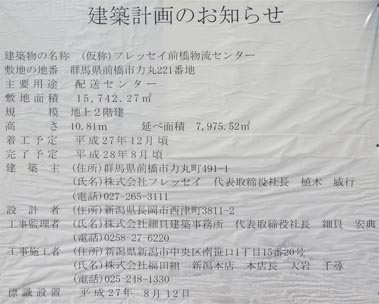 建築計画のお知らせ
建築物の名称 (仮称)フレッセイ前橋物流センター
敷地の地番 群馬県前橋市力丸221番地
主要用途 配送センター
敷地面積 15,742.27㎡
規模 地上2階建
高さ 10.81m 延べ面積 7,975.52㎡
着工予定 平成27年12月頃
完了予定 平成28年8月頃
建築主 (住所)群馬県前橋市力丸町491-1
(氏名)株式会社フレッセイ 代表取締役社長 植木 威行
(電話)027-265-3111
設計者 (住所)新潟県長岡市西津町3811-2
工事監理者 (氏名)株式会社細貝建築事務所 代表取締役社長 細貝 宏典
(電話)0258-27-6220
工事施工者 (住所)新潟県新潟市中央区南笹口1丁目15番20号
(氏名)株式会社福田組 新潟本店 本店長 大岩 千尋
(電話)025-248-1330
標識設置 平成27年 8月12日